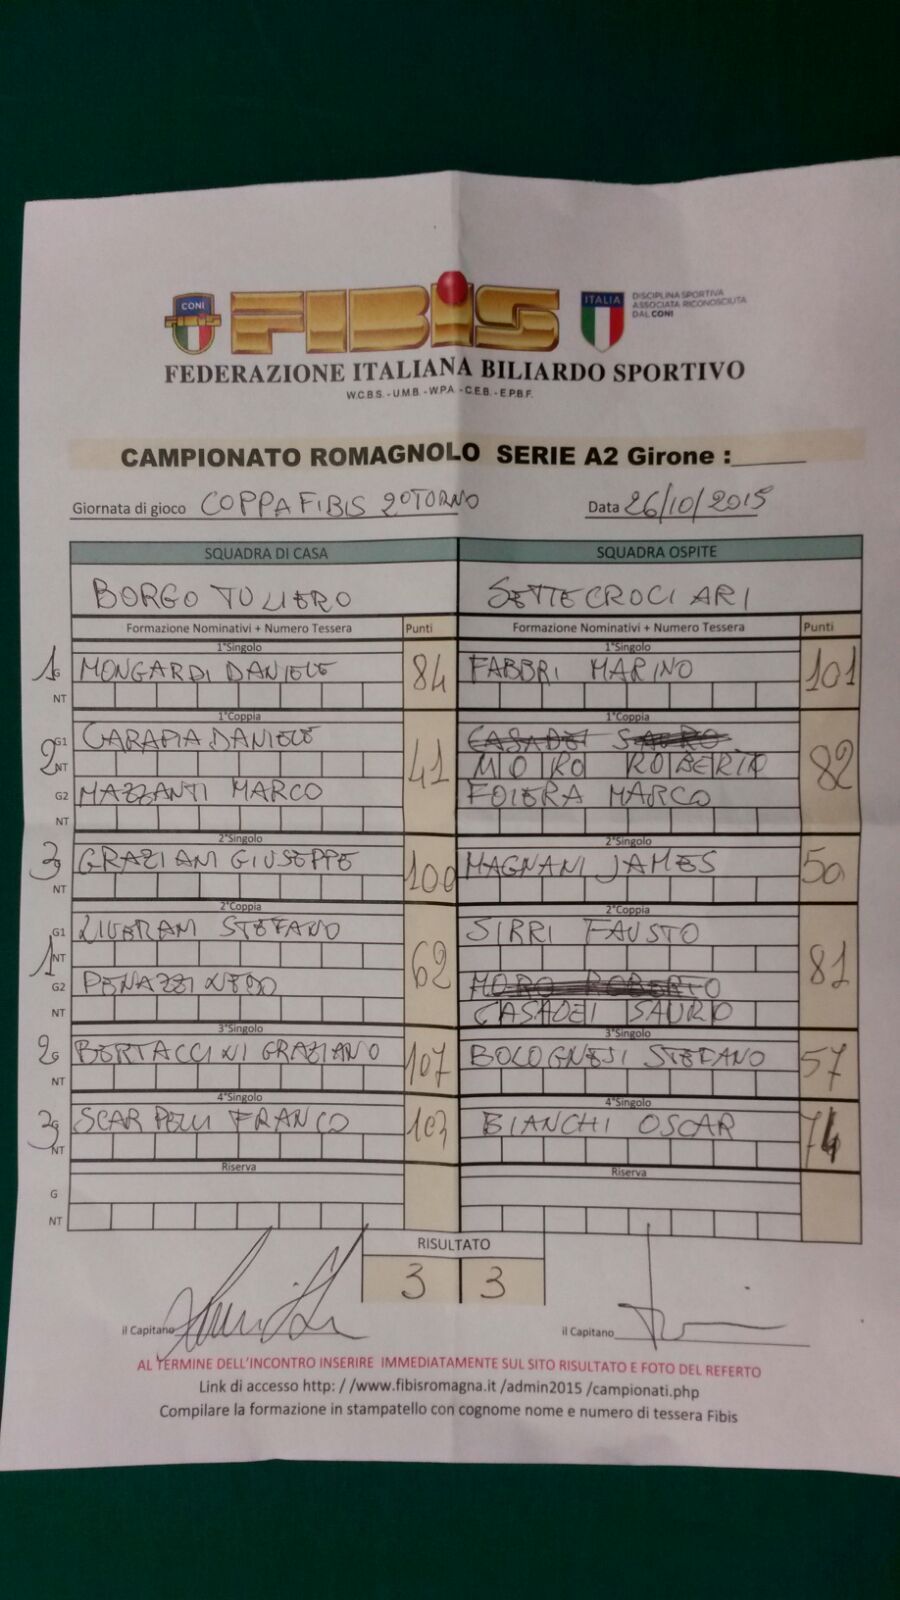 CONI
FIBIS
FIBIS
ITALIA
DISCIPLINA SPORTIVA
ASSOCIATA RICONOSCIUTA
DAL CONI
FEDERAZIONE ITALIANA BILIARDO SPORTIVO
W.C.B.S. - U.M.B. - W.P.A. - C.E.B. - E.P.B.F.
CAMPIONATO ROMAGNOLO SERIE A2 Girone :
Giornata di gioco COPPA FIBIS 2°TORNO Data 26/10/2015
SQUADRA DI CASA SQUADRA OSPITE
BORGO TULIERO SETTECROCIARI
Formazione Nominativi + Numero Tessera Punti Formazione Nominativi + Numero Tessera Punti
1°Singolo 1°Singolo
1 G MONGARDI DANIELE 84 FABBRI MARINO 101
NT
1°Coppia 1°Coppia
G1 CARAPIA DANIELE CASADEI SAURO
2 NT 41 MORO ROBERTO 82
G2 MAZZANTI MARCO FOIERA MARCO
NT
2°Singolo 2°Singolo
3 G GRAZIANI GIUSEPPE 100 MAGNANI JAMES 50
NT
2°Coppia 2°Coppia
G1 LIVERANI STEFANO SIRRI FAUSTO
1 NT 62 81
G2 PENAZZI NEDO MORO ROBERTO
NT CASADEI SAURO
3°Singolo 3°Singolo
2 G BERTACCINI GRAZIANO 107 BOLOGNESI STEFANO 57
NT
4°Singolo 4°Singolo
3 G SCARPELLI FRANCO 103 BIANCHI OSCAR 74
NT
Riserva Riserva
G
NT
RISULTATO
3 3
il Capitano il Capitano
AL TERMINE DELL'INCONTRO INSERIRE IMMEDIATAMENTE SUL SITO RISULTATO E FOTO DEL REFERTO
Link di accesso http: / /www.fibisromagna.it /admin2015 /campionati.php
Compilare la formazione in stampatello con cognome nome e numero di tessera Fibis